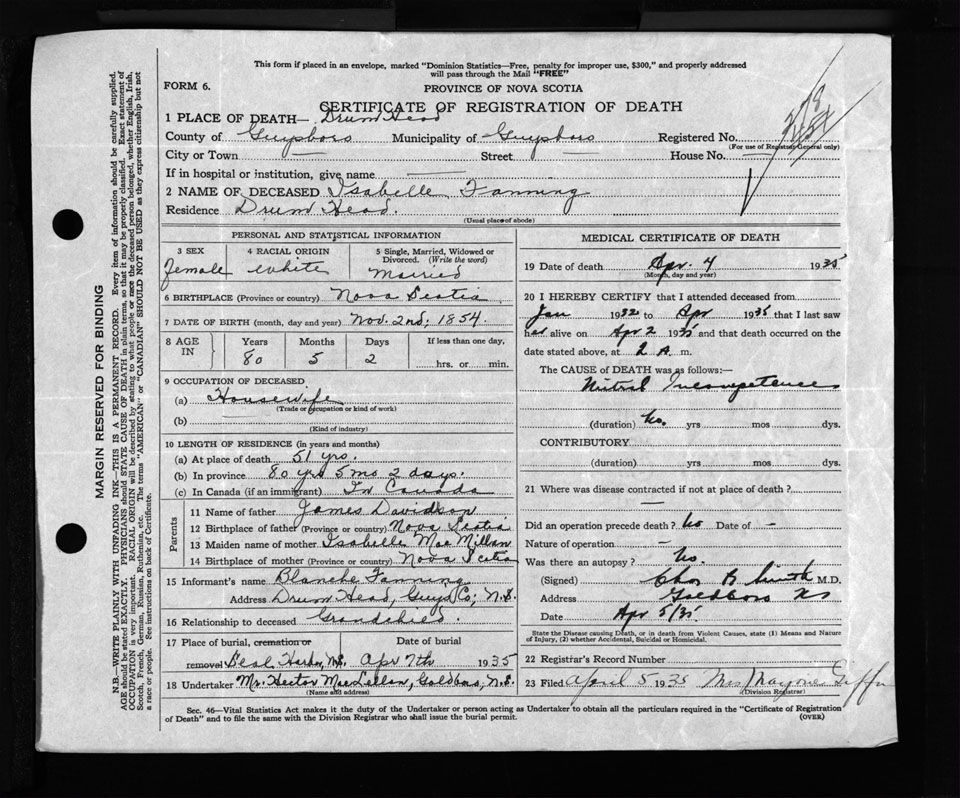 This form if placed in an envelope, marked "Dominion Statistics—Free, penalty for improper use, $300," and properly addressed
will pass through the Mail "FREE"
FORM 6.
PROVINCE OF NOVA SCOTIA
CERTIFICATE OF REGISTRATION OF DEATH
1 PLACE OF DEATH— Drum Head
County of Guysboro Municipality of Guysboro Registered No.
(For use of Registrar General only)
City or Town — Street — House No. —
If in hospital or institution, give name
2 NAME OF DECEASED Isabelle Fanning
Residence Drum Head.
(Usual place of abode)
PERSONAL AND STATISTICAL INFORMATION
3 SEX 4 RACIAL ORIGIN 5 Single, Married, Widowed or
Divorced. (Write the word)
Female White Married
6 BIRTHPLACE (Province or country) Nova Scotia
7 DATE OF BIRTH (month, day and year) Nov. 2nd, 1854.
8 AGE IN Years Months Days If less than one day,
80 5 2 hrs. or min.
9 OCCUPATION OF DECEASED
(a) Housewife
(Trade or occupation or kind of work)
(b)
(Kind of industry)
10 LENGTH OF RESIDENCE (in years and months)
(a) At place of death 51 yrs.
(b) In province 80 yrs 5 mo 2 days.
(c) In Canada (if an immigrant) In Canada
Parents
11 Name of father James Davidson
12 Birthplace of father (Province or country) Nova Scotia
13 Maiden name of mother Isabelle MacMillan
14 Birthplace of mother (Province or country) Nova Scotia
15 Informant's name Blanche Fanning
Address Drum Head, Guys Co, N.S.
16 Relationship to deceased Grandchild.
17 Place of burial, cremation or Date of burial
removal Seal Harbor, N.S. Apr 7th 1935
18 Undertaker Mr. Hector MacLellan, Goldboro, N.S.
(Name and address)
MEDICAL CERTIFICATE OF DEATH
19 Date of death Apr. 4 1935
(Month, day and year)
20 I HEREBY CERTIFY that I attended deceased from
Jan 1932 to Apr 1935 that I last saw
her alive on Apr 2 1935 and that death occurred on the
date stated above, at 2 A m.
The CAUSE of DEATH was as follows:—
Mitral Incompetence
(duration) yrs mos dys.
CONTRIBUTORY
(duration) yrs mos dys.
21 Where was disease contracted if not at place of death?
—
Did an operation precede death? No Date of —
Nature of operation —
Was there an autopsy? No.
(Signed) Chas B Smith M.D.
Address Goldboro NS
Date Apr 5/35
State the Disease causing Death, or in death from Violent Causes, state (1) Means and Nature
of Injury, (2) whether Accidental, Suicidal or Homicidal.
22 Registrar's Record Number
23 Filed April 5 1935 Mrs Mayme Giffin
(Division Registrar)
Sec. 46—Vital Statistics Act makes it the duty of the Undertaker or person acting as Undertaker to obtain all the particulars required in the "Certificate of Registration
of Death" and to file the same with the Division Registrar who shall issue the burial permit.
(OVER)
MARGIN RESERVED FOR BINDING
N.B.—WRITE PLAINLY WITH UNFADING INK—THIS IS A PERMANENT RECORD. Every item of information should be carefully supplied.
AGE should be stated EXACTLY. PHYSICIANS should STATE CAUSE OF DEATH in plain terms, so that it may be properly classified. Exact statement of
OCCUPATION is very important. RACIAL ORIGIN will be described by stating to what people or race the deceased person belonged, whether English, Irish,
Scotch, French, German, Russian, Ruthenian, etc. The terms "AMERICAN" or "CANADIAN" SHOULD NOT BE USED as they express citizenship but not
a race or people. See instructions on back of Certificate.